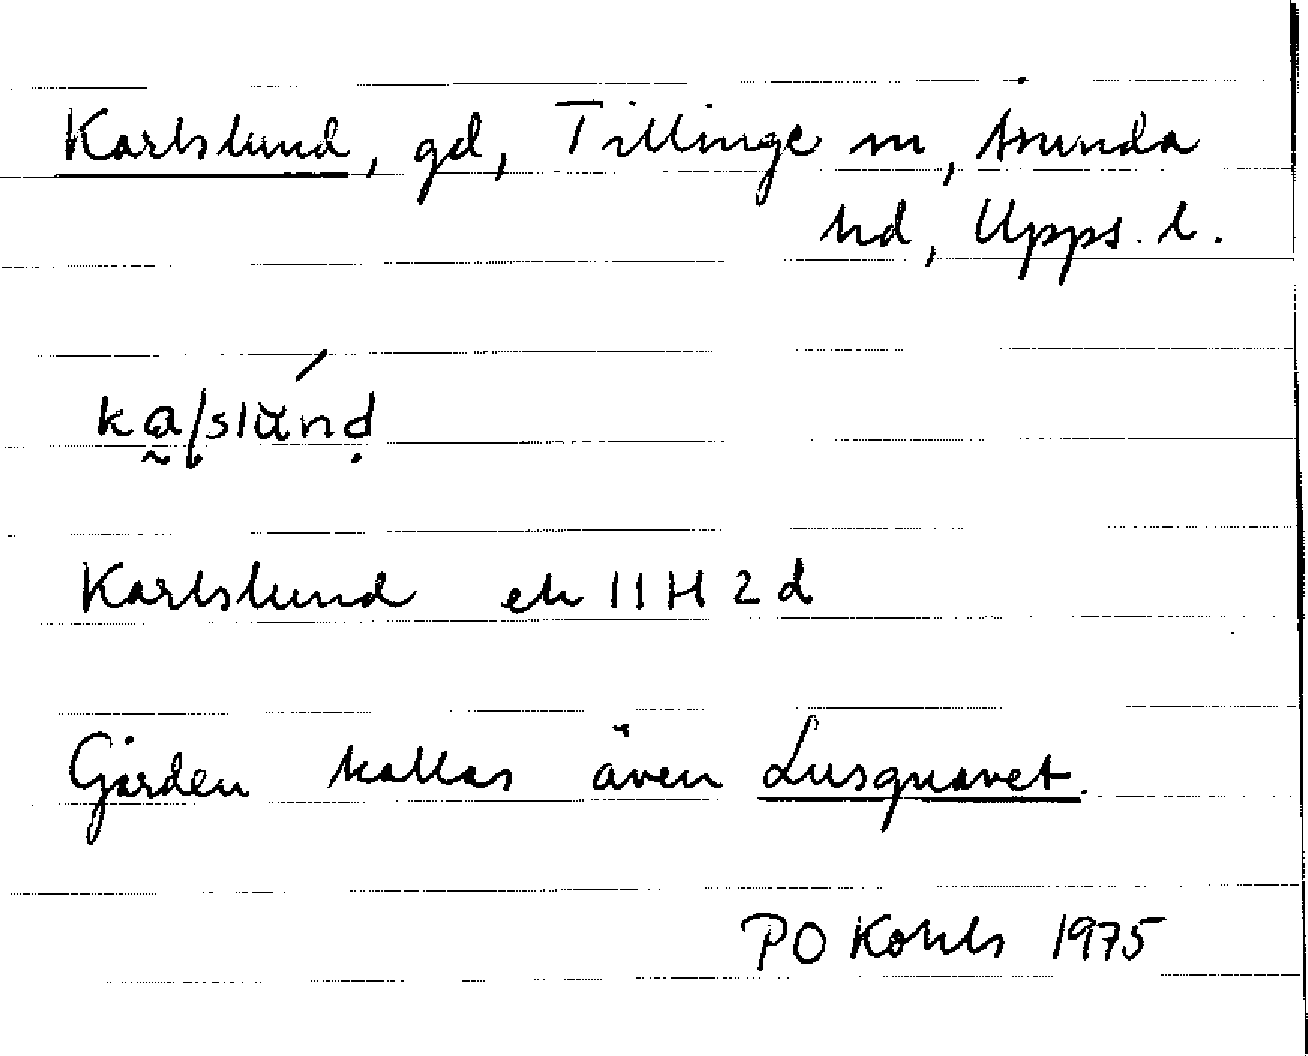 Karlslund, gd, Tillinge sn, Åsunda
hd, Upps. l.
Karlslund ek 11 H 2 d
Gården kallas även Lusgnavet.
PO Kohls 1975